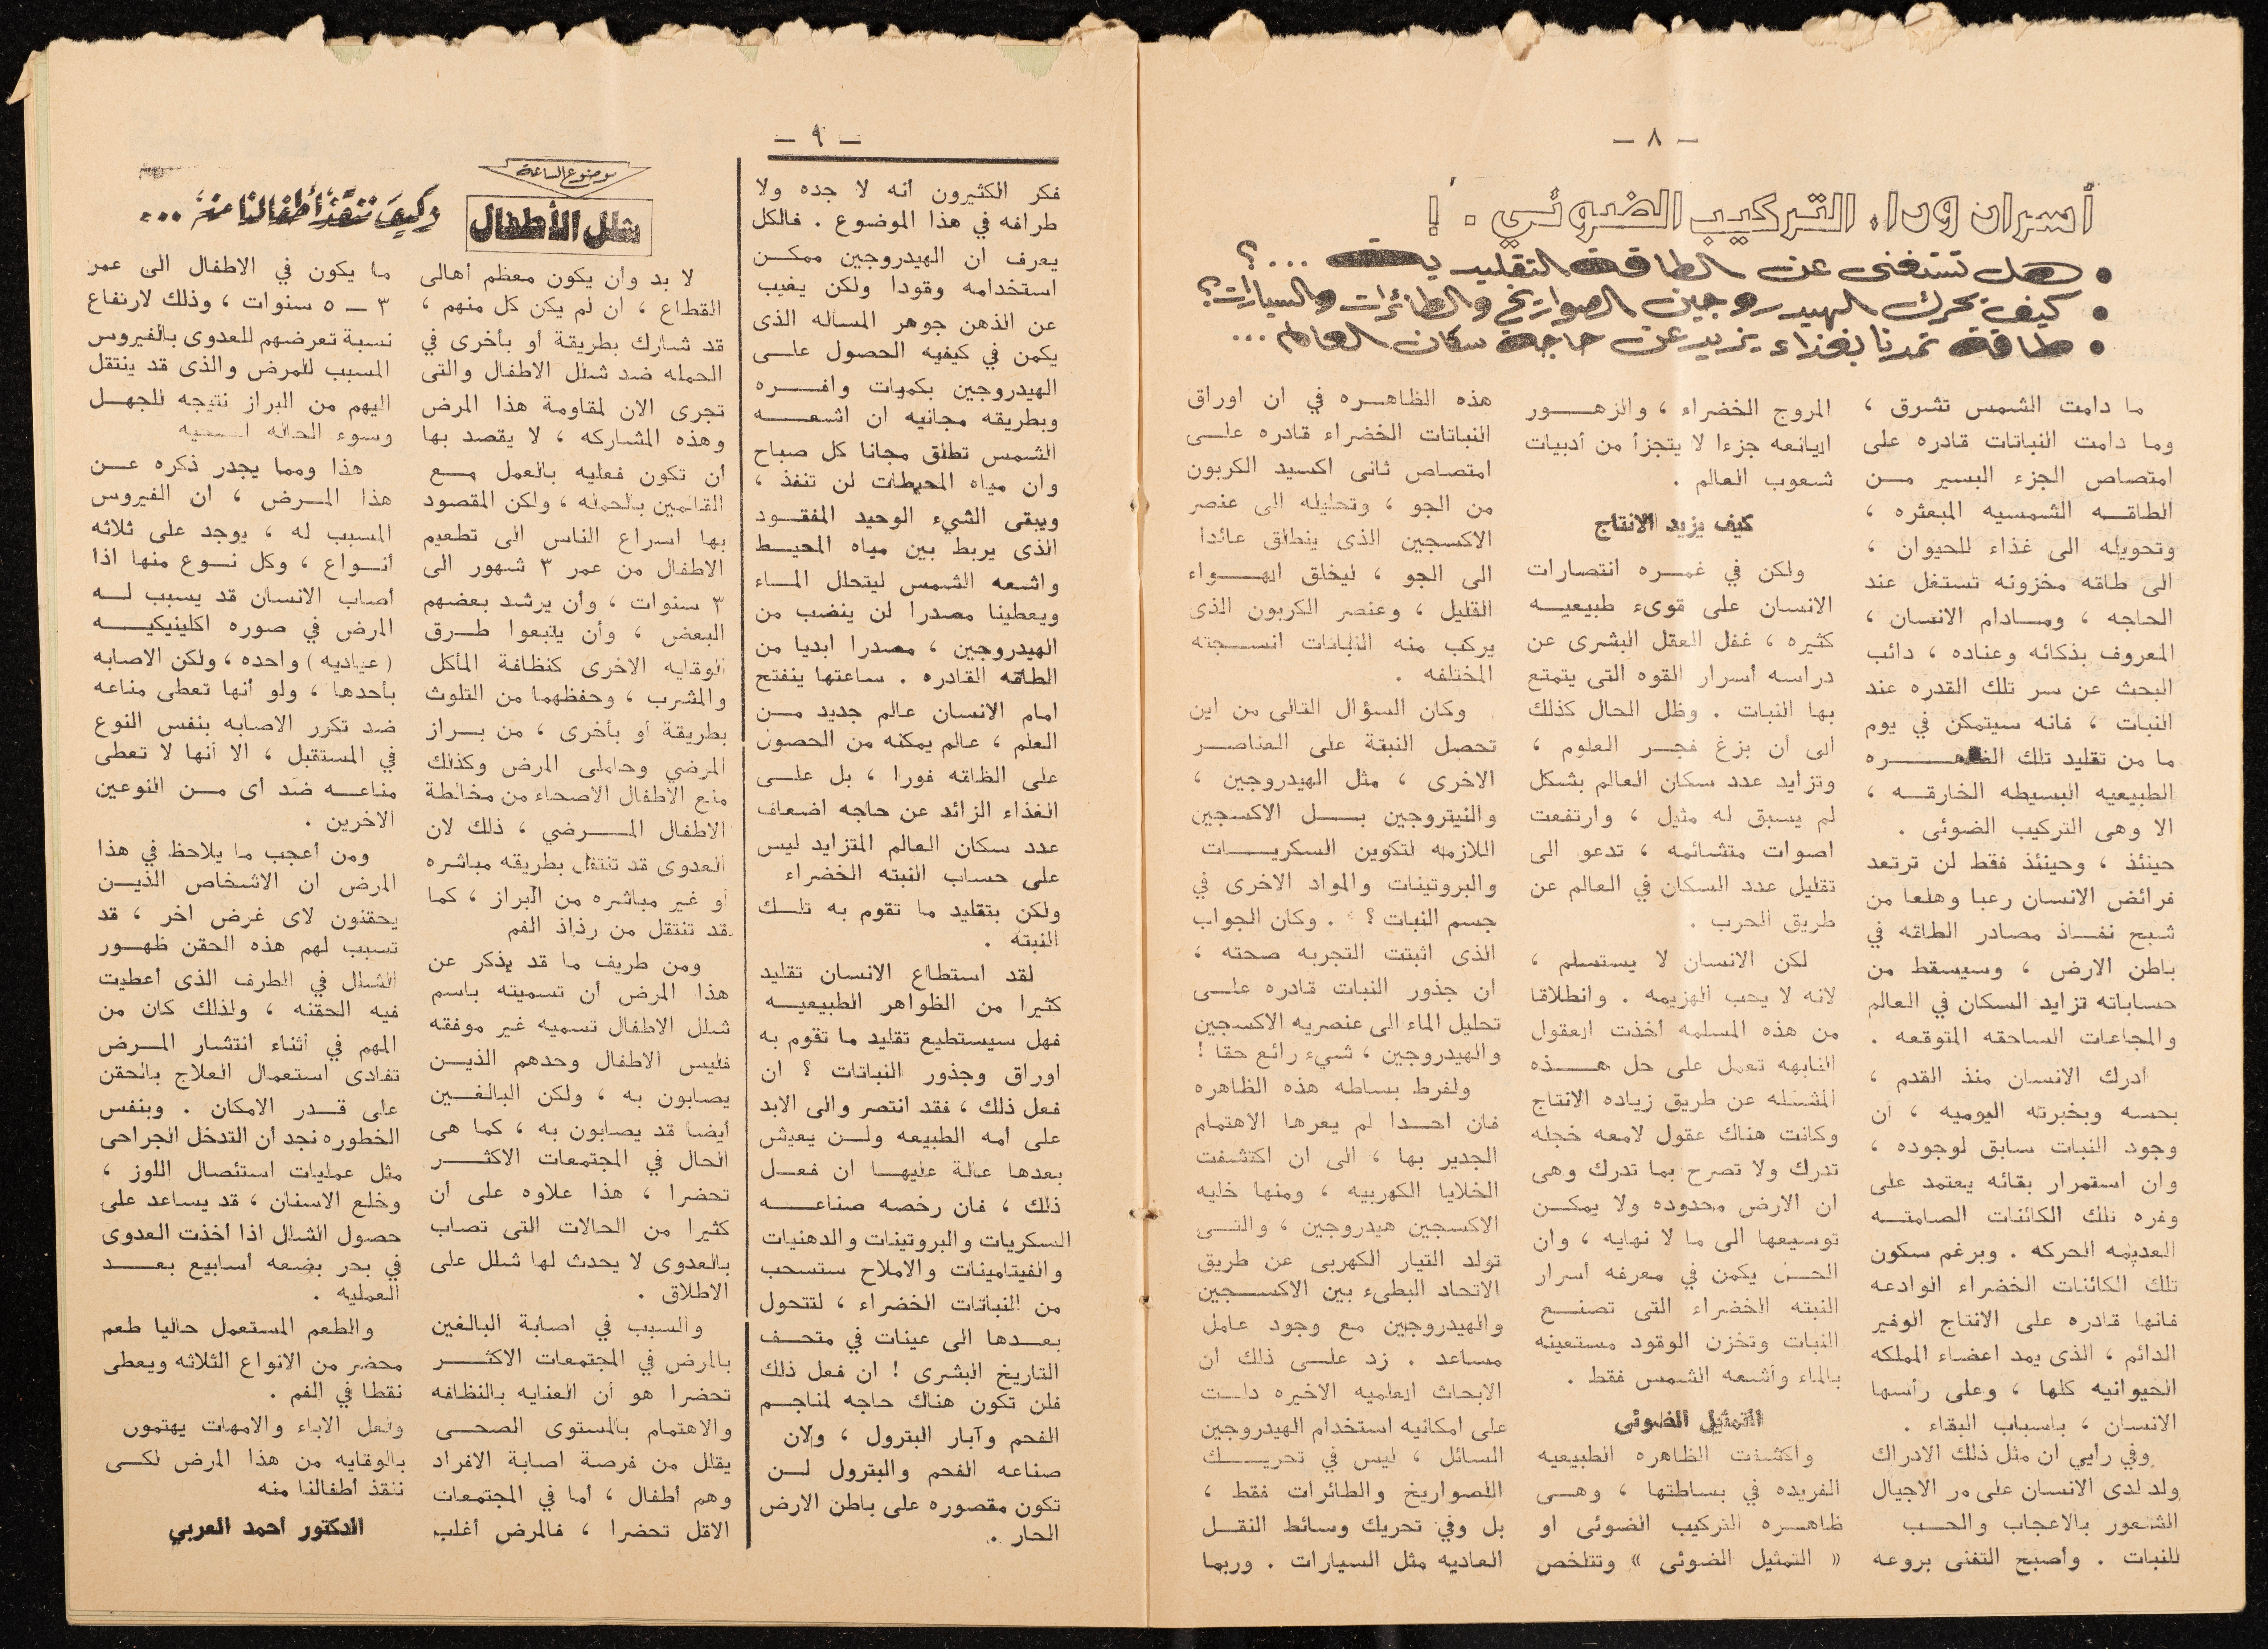 — ٨ —
أسرار وراء التركيب الضوئي . !
• هل نستغنى عن الطاقة التقليدية ... ؟
• كيف يحرك الهيدروجين الصواريخ والطائرات والسيارات؟
• طاقة تمدنا بغذاء يزيد عن حاجة سكان العالم ...
ما دامت الشمس تشرق ،
وما دامت النباتات قادره على
امتصاص الجزء اليسير مـن
الطاقـه الشمسيه المبعثره ،
وتحويله الى غذاء للحيوان ،
الى طاقه مخزونه تستغل عند
الحاجه ، ومـادام الانسان ،
المعروف بذكائه وعناده ، دائب
البحث عن سر تلك القدره عند
النبات ، فانه سيتمكن في يوم
ما من تقليد تلك الظاهـره
الطبيعيه البسيطه الخارقـه ،
الا وهى التركيب الضوئى .
حينئذ ، وحينئذ فقط لن ترتعد
فرائض الانسان رعبا وهلعا من
شبح نفـاذ مصادر الطاقه في
باطن الارض ، وسيسقط من
حساباته تزايد السكان في العالم
والمجاعات الساحقه المتوقعه .
أدرك الانسان منذ القدم ،
بحسه وبخبرته اليوميه ، ان
وجود النبات سابق لوجوده ،
وان استمرار بقائه يعتمد على
وفره تلك الكائنات الصامتـه
العديمه الحركه . وبرغم سكون
تلك الكائنات الخضراء الوادعه
فانها قادره على الانتاج الوفير
الدائم ، الذى يمد اعضاء المملكه
الحيوانيه كلها ، وعلى رأسها
الانسان ، باسباب البقاء .
وفي رأيي ان مثل ذلك الادراك
ولد لدى الانسان على مر الاجيال
الشعور بالاعجاب والحـب
للنبات . وأصبح التغنى بروعه
المروج الخضراء ، والزهـور
اليانعه جزءا لا يتجزأ من أدبيات
شعوب العالم .
كيف يزيد الانتاج
ولكن في غمـره انتصارات
الانسان على قوىء طبيعيـه
كثيره ، غفل العقل البشرى عن
دراسه أسرار القوه التى يتمتع
بها النبات . وظل الحال كذلك
الى أن بزغ فجـر العلوم ،
وتزايد عدد سكان العالم بشكل
لم يسبق له مثيل ، وارتفعت
اصوات متشائمه ، تدعو الى
تقليل عدد السكان في العالم عن
طريق الحرب .
لكن الانسان لا يستسلم ،
لانه لا يحب الهزيمه . وانطلاقا
من هذه المسلمه أخذت العقول
النابهه تعمل على حل هـذه
المشكله عن طريق زياده الانتاج
وكانت هناك عقول لامعه خجله
تدرك ولا تصرح بما تدرك وهى
ان الارض محدوده ولا يمكـن
توسيعها الى ما لا نهايه ، وان
الحـل يكمن في معرفه أسرار
النبته الخضراء التى تصنـع
النبات وتخزن الوقود مستعينه
بالماء وأشعه الشمس فقط .
التمثيل الضوئى
واكتشفت الظاهره الطبيعيه
الفريده في بساطتها ، وهـى
ظاهـره التركيب الضوئى او
« التمثيل الضوئى » وتتلخص
هذه الظاهـره في ان اوراق
النباتات الخضراء قادره علـى
امتصاص ثانى اكسيد الكربون
من الجو ، وتحليله الى عنصر
الاكسجين الذى ينطلق عائدا
الى الجو ، ليخلق الهـواء
القليل ، وعنصر الكربون الذى
يركب منه النباتات انسـجته
المختلفه .
وكان السؤال التالى من اين
تحصل النبتة على العناصـر
الاخرى ، مثل الهيدروجين ،
والنيتروجين بـل الاكسجين
اللازمه لتكوين السكريـات
والبروتينات والمواد الاخرى في
جسم النبات ؟ . وكان الجواب
الذى اثبتت التجربه صحته ،
ان جذور النبات قادره علـى
تحليل الماء الى عنصريه الاكسجين
والهيدروجين ، شيء رائع حقا !
ولفرط بساطه هذه الظاهره
فان احـدا لم يعرها الاهتمام
الجدير بها ، الى ان اكتشفت
الخلايا الكهربيه ، ومنها خليه
الاكسجين هيدروجين ، والتـى
تولد التيار الكهربى عن طريق
الاتحاد البطىء بين الاكسـجين
والهيدروجين مع وجود عامل
مساعد . زد علـى ذلك ان
الابحاث العلميه الاخيره دلـت
على امكانيه استخدام الهيدروجين
السائل ، ليس في تحريـك
الصواريخ والطائرات فقط ،
بل وفي تحريك وسائط النقـل
العاديه مثل السيارات . وربما
— ٩ —
فكر الكثيرون أنه لا جده ولا
طرافه في هذا الموضوع . فالكل
يعرف ان الهيدروجين ممكـن
استخدامه وقودا ولكن يغيب
عن الذهن جوهر المساله الذى
يكمن في كيفيه الحصول علـى
الهيدروجين بكميات وافـره
وبطريقه مجانيه ان اشعـه
الشمس تطلق مجانا كل صباح
وان مياه المحيطات لن تنفذ ،
ويبقى الشيء الوحيد المفقـود
الذى يربط بين مياه المحيـط
واشعه الشمس ليتحلل المـاء
ويعطينا مصدرا لن ينضب من
الهيدروجين ، مصدرا ابديا من
الطاقه القادره . ساعتها ينفتح
امام الانسان عالم جديد مـن
العلم ، عالم يمكنه من الحصول
على الطاقه فورا ، بل علـى
الغذاء الزائد عن حاجه اضعاف
عدد سكان العالم المتزايد ليس
على حساب النبته الخضراء
ولكن بتقليد ما تقوم به تلـك
النبته .
لقد استطاع الانسان تقليد
كثيرا من الظواهر الطبيعيـه
فهل سيستطيع تقليد ما تقوم به
اوراق وجذور النباتات ؟ ان
فعل ذلك ، فقد انتصر والى الابد
على أمه الطبيعه ولـن يعيش
بعدها عالة عليهـا ان فعـل
ذلك ، فان رخصه صناعـه
السكريات والبروتينات والدهنيات
والفيتامينات والاملاح ستسحب
من النباتات الخضراء ، لتتحول
بعـدها الى عينات في متحـف
التاريخ البشرى ! ان فعل ذلك
فلن تكون هناك حاجه لمناجـم
الفحم وآبار البترول ، ولان
صناعه الفحم والبترول لـن
تكون مقصوره على باطن الارض
الحار .
موضوع الساعة
شلل الأطفال
وكيف ننقذ أطفالنا منه ...
لا بد وان يكون معظم أهالى
القطاع ، ان لم يكن كل منهم ،
قد شارك بطريقة أو بأخرى في
الحمله ضد شلل الاطفال والتى
تجرى الان لمقاومة هذا المرض
وهذه المشاركه ، لا يقصد بها
أن تكون فعليه بالعمل مـع
القائمين بالحمله ، ولكن المقصود
بها اسراع الناس الى تطعيم
الاطفال من عمر ٣ شهور الى
٣ سنوات ، وأن يرشد بعضهم
البعض ، وأن يتبعوا طـرق
الوقايه الاخرى كنظافة المأكل
والمشرب ، وحفظهما من التلوث
بطريقة أو بأخرى ، من بـراز
المرضي وحاملى المرض وكذلك
منع الاطفال الاصحاء من مخالطة
الاطفال المـرضي ، ذلك لان
العدوى قد تنتقل بطريقه مباشره
أو غير مباشره من البراز ، كما
قد تنتقل من رذاذ الفم
ومن طريف ما قد يذكر عن
هذا المرض أن تسميته باسم
شلل الاطفال تسميه غير موفقه
فليس الاطفال وحدهم الذيـن
يصابون به ، ولكن البالغـين
أيضا قد يصابون به ، كما هى
الحال في المجتمعات الاكثـر
تحضرا ، هذا علاوه على أن
كثيرا من الحالات التى تصاب
بالعدوى لا يحدث لها شلل على
الاطلاق .
والسبب في اصابة البالغين
بالمرض في المجتمعات الاكثـر
تحضرا هو أن العنايه بالنظافه
والاهتمام بالمستوى الصحـى
يقلل من فرصة اصابة الافراد
وهم أطفال ، أما في المجتمعات
الاقل تحضرا ، فالمرض أغلب
ما يكون في الاطفال الى عمر
٣ ـ ٥ سنوات ، وذلك لارتفاع
نسبة تعرضهم للعدوى بالفيروس
المسبب للمرض والذى قد ينتقل
اليهم من البراز نتيجه للجهـل
وسوء الحاله
هذا ومما يجدر ذكره عـن
هذا المـرض ، ان الفيروس
المسبب له ، يوجد على ثلاثه
أنـواع ، وكل نـوع منها اذا
أصاب الانسان قد يسبب لـه
المرض في صوره اكلينيكيـه
( عياديه ) واحده ، ولكن الاصابه
بأحدها ، ولو أنها تعطى مناعه
ضد تكرر الاصابه بنفس النوع
في المستقبل ، الا أنها لا تعطى
مناعـه ضد اى مـن النوعين
الاخرين .
ومن أعجب ما يلاحظ في هذا
المرض ان الاشخاص الذيـن
يحقنون لاى غرض اخر ، قد
تسبب لهم هذه الحقن ظهـور
الشلل في الطرف الذى أعطيت
فيه الحقنه ، ولذلك كان من
المهم في أثناء انتشار المـرض
تفادى استعمال العلاج بالحقن
على قـدر الامكان . وبنفس
الخطوره نجد أن التدخل الجراحى
مثل عمليات استئصال اللوز ،
وخلع الاسنان ، قد يساعد على
حصول الشلل اذا أخذت العدوى
في بحر بضعه أسابيع بعـد
العمليه .
والطعم المستعمل حاليا طعم
محضر من الانواع الثلاثه ويعطى
نقطا في الفم .
ولعل الاباء والامهات يهتمون
بالوقايه من هذا المرض لكـى
ننقذ أطفالنا منه
الدكتور أحمد العربي